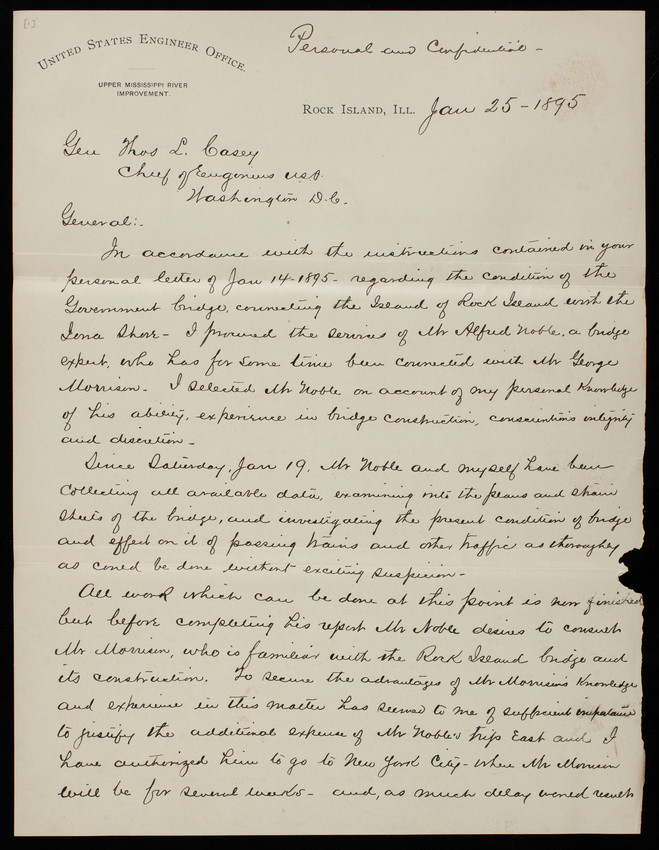 [1]
UNITED STATES ENGINEER OFFICE.
UPPER MISSISSIPPI RIVER
IMPROVEMENT.
Personal and Confidential -
ROCK ISLAND, ILL. Jan 25 - 1895
Gen Thos L. Casey
Chief of Engineers USA.
Washington D.C.
General:-
In accordance with the instructions contained in your
personal letter of Jan 14 - 1895 - regarding the condition of the
Government bridge, connecting the Island of Rock Island with the
Iowa Shore - I procured the services of Mr Alfred Noble, a bridge
expert, who has for some time been connected with Mr George
Morrison. I selected Mr Noble on account of my personal Knowledge
of his ability, experience in bridge construction, conscientious integrity
and discretion -
Since Saturday, Jan 19, Mr Noble and myself have been
collecting all available data, examining into the plans and strain
sheets of the bridge, and investigating the present condition of bridge
and effect on it of passing trains and other traffic as thoroughly
as could be done without exciting suspicion -
All work which can be done at this point is now finished
but before completing his report Mr Noble desires to consult
Mr Morrison, who is familiar with the Rock Island bridge and
its construction. To secure the advantages of Mr Morrison's Knowledge
and experience in this matter has seemed to me of sufficient importance
to justify the additional expense of Mr Noble's trip East and I
have authorized him to go to New York City - where Mr Morrison
will be for several weeks - and, as much delay would result